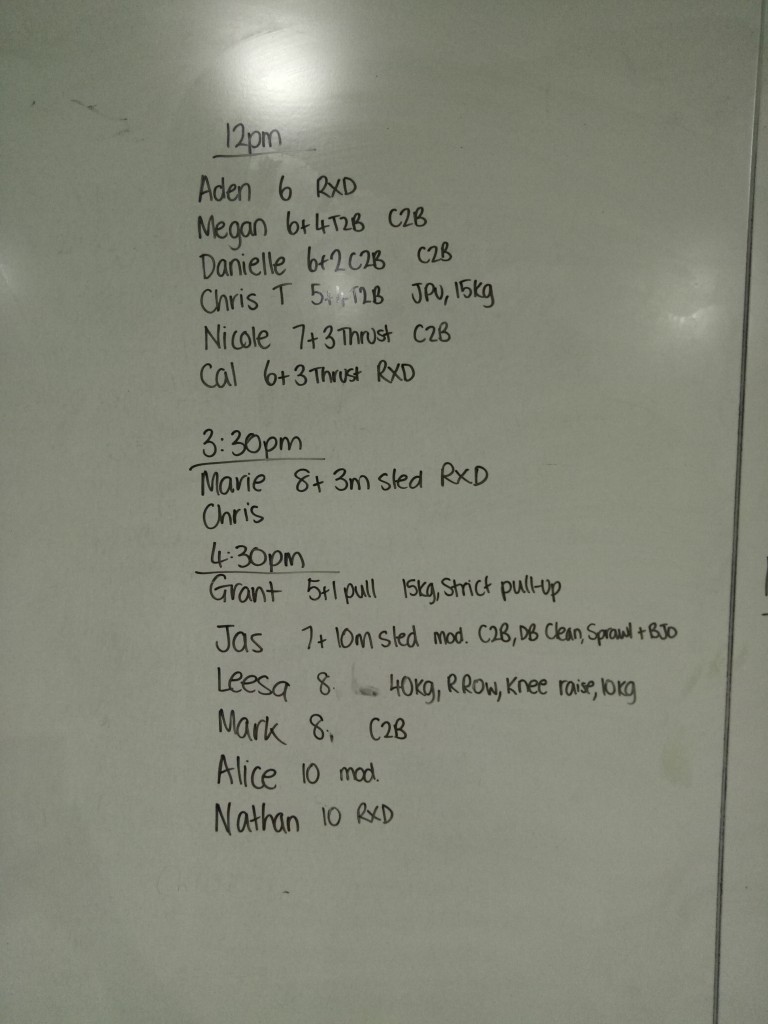 12pm
Aden 6 RXD
Megan 6+4T2B C2B
Danielle 6+2C2B C2B
Chris T 5 T2B JPU, 15kg
Nicole 7+3Thrust C2B
Cal 6+3Thrust RXD
3:30pm
Marie 8+ 3m sled RXD
Chris
4:30pm
Grant 5+1 pull 15kg, Strict pull-up
Jas 7+ 10m sled mod. C2B, DB Clean, Sprawl + BJO
Leesa 8 40kg, RROW, Knee raise, 10kg
Mark 8, C2B
Alice 10 mod.
Nathan 10 RXD